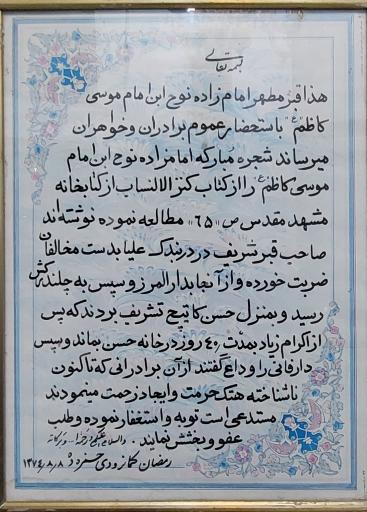 بسمه تعالی
هذا قبر مطهر امام زاده نوح ابن امام موسی
کاظم «ع» باستحضار عموم برادران و خواهران
میرساند شجره مبارکه امامزاده نوح ابن امام
موسی کاظم «ع» را از کتاب کنز الانساب از کتابخانه
مشهد مقدس ص «۶۵» مطالعه نموده نوشته اند
صاحب قبر شریف در دربندک علیا بدست مخالفان
ضربت خورده و از آنجا بدارالمرز و سپس به چلندر کش
رسید و بمنزل حسن کاتیج تشریف بردند که پس
از اکرام زیاد بمدت ۴۰ روز در خانه حسن بماند و سپس
دار فانی را وداع گفتند از آن برادرانی که تاکنون
ناشناخته هتک حرمت و ایجاد زحمت مینمودند
مستدعی است توبه و استغفار نموده و طلب
عفو و بخشش نمایند . والسلام علیکم و رحمة الله و برکاته
رمضان ۱۳۷۴/۸/۸